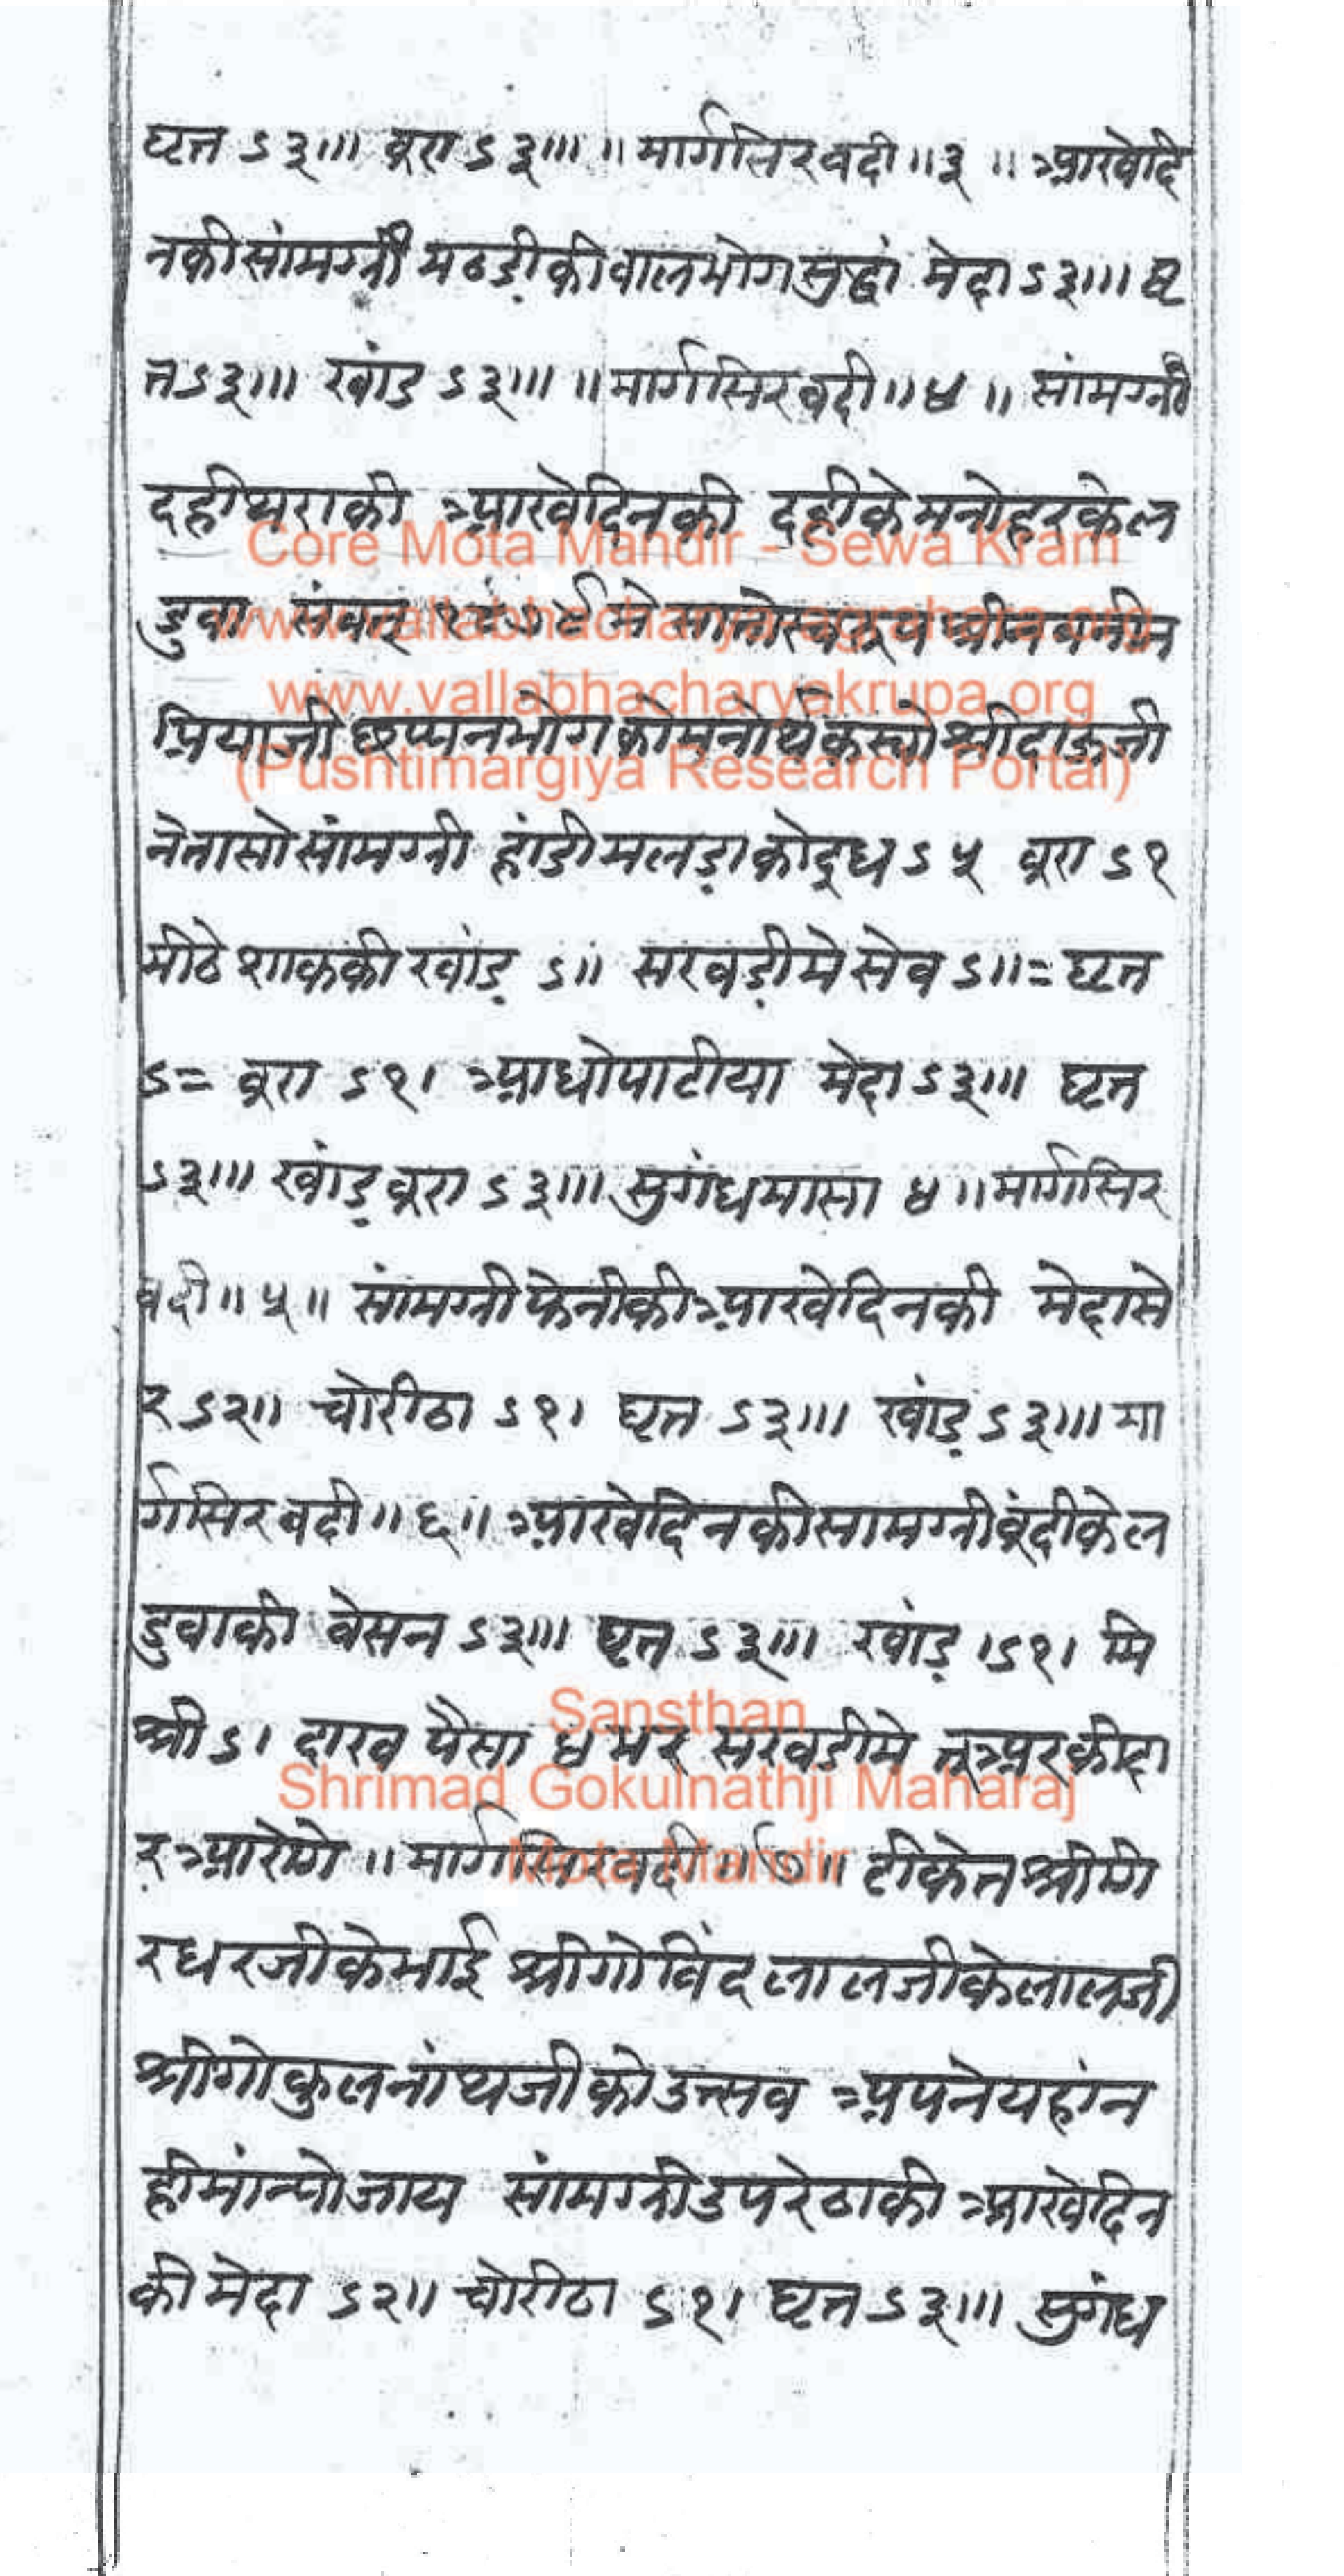 घृत ऽ३॥। बूरा ऽ३॥। ॥ मार्गसिर वदी ॥ ३ ॥ आखे दि
न की सांमग्री मठडी की बालभोग सुद्धां मेदा ऽ३॥। घृ
त ऽ३॥। खांड ऽ३॥। ॥ मार्गसिर वदी ॥ ४ ॥ सांमग्री
दहीथरा की आखे दिन की दही के मनोहर के ल
डुवा संवत् मे सातो स्वरूप श्रीनवनीत
प्रियाजी छप्पनभोग को मनोर्थ कर्त्तो श्रीदाऊजी
ने तासो सांमग्री हांडी मलडा को दूध ऽ५ बूरा ऽ१
मीठे शाक की खांड ऽ॥ सखडी मे सेव ऽ॥= घृत
ऽ= बूरा ऽ१। आधो पाटीया मेदा ऽ३॥। घृत
ऽ३॥। खांड बूरा ऽ३॥। सुगंध मासा ४ ॥ मार्गसिर
वदी ॥ ५ ॥ सांमग्री फेनी की आखे दिन की मेदा से
र ऽ२॥ चोरीठा ऽ१। घृत ऽ३॥। खांड ऽ३॥। मा
र्गसिर वदी ॥ ६ ॥ आखे दिन की सामग्री बूंदी के ल
डुवा की बेसन ऽ३॥। घृत ऽ३॥। खांड ।ऽ१। मि
श्री ऽ। दाख पैसा ४ भर सखडी मे तूअर की दा
र आरोगे ॥ मार्गसिर वदी ॥ ७ ॥ टीकेत श्रीगि
रधरजी के भाई श्रीगोविंदलालजी के लालजी
श्रीगोकुलनांथजी को उत्सव अपने यहां न
ही मांन्यो जाय सांमग्री उपरेठा की आखे दिन
की मेदा ऽ२॥ चोरीठा ऽ१। घृत ऽ३॥। सुगंध
Core Mota Mandir - Sewa Kram
www.vallabhacharyakrupa.org
(Pushtimargiya Research Portal)
Sansthan
Shrimad Gokulnathji Maharaj
Mota Mandir